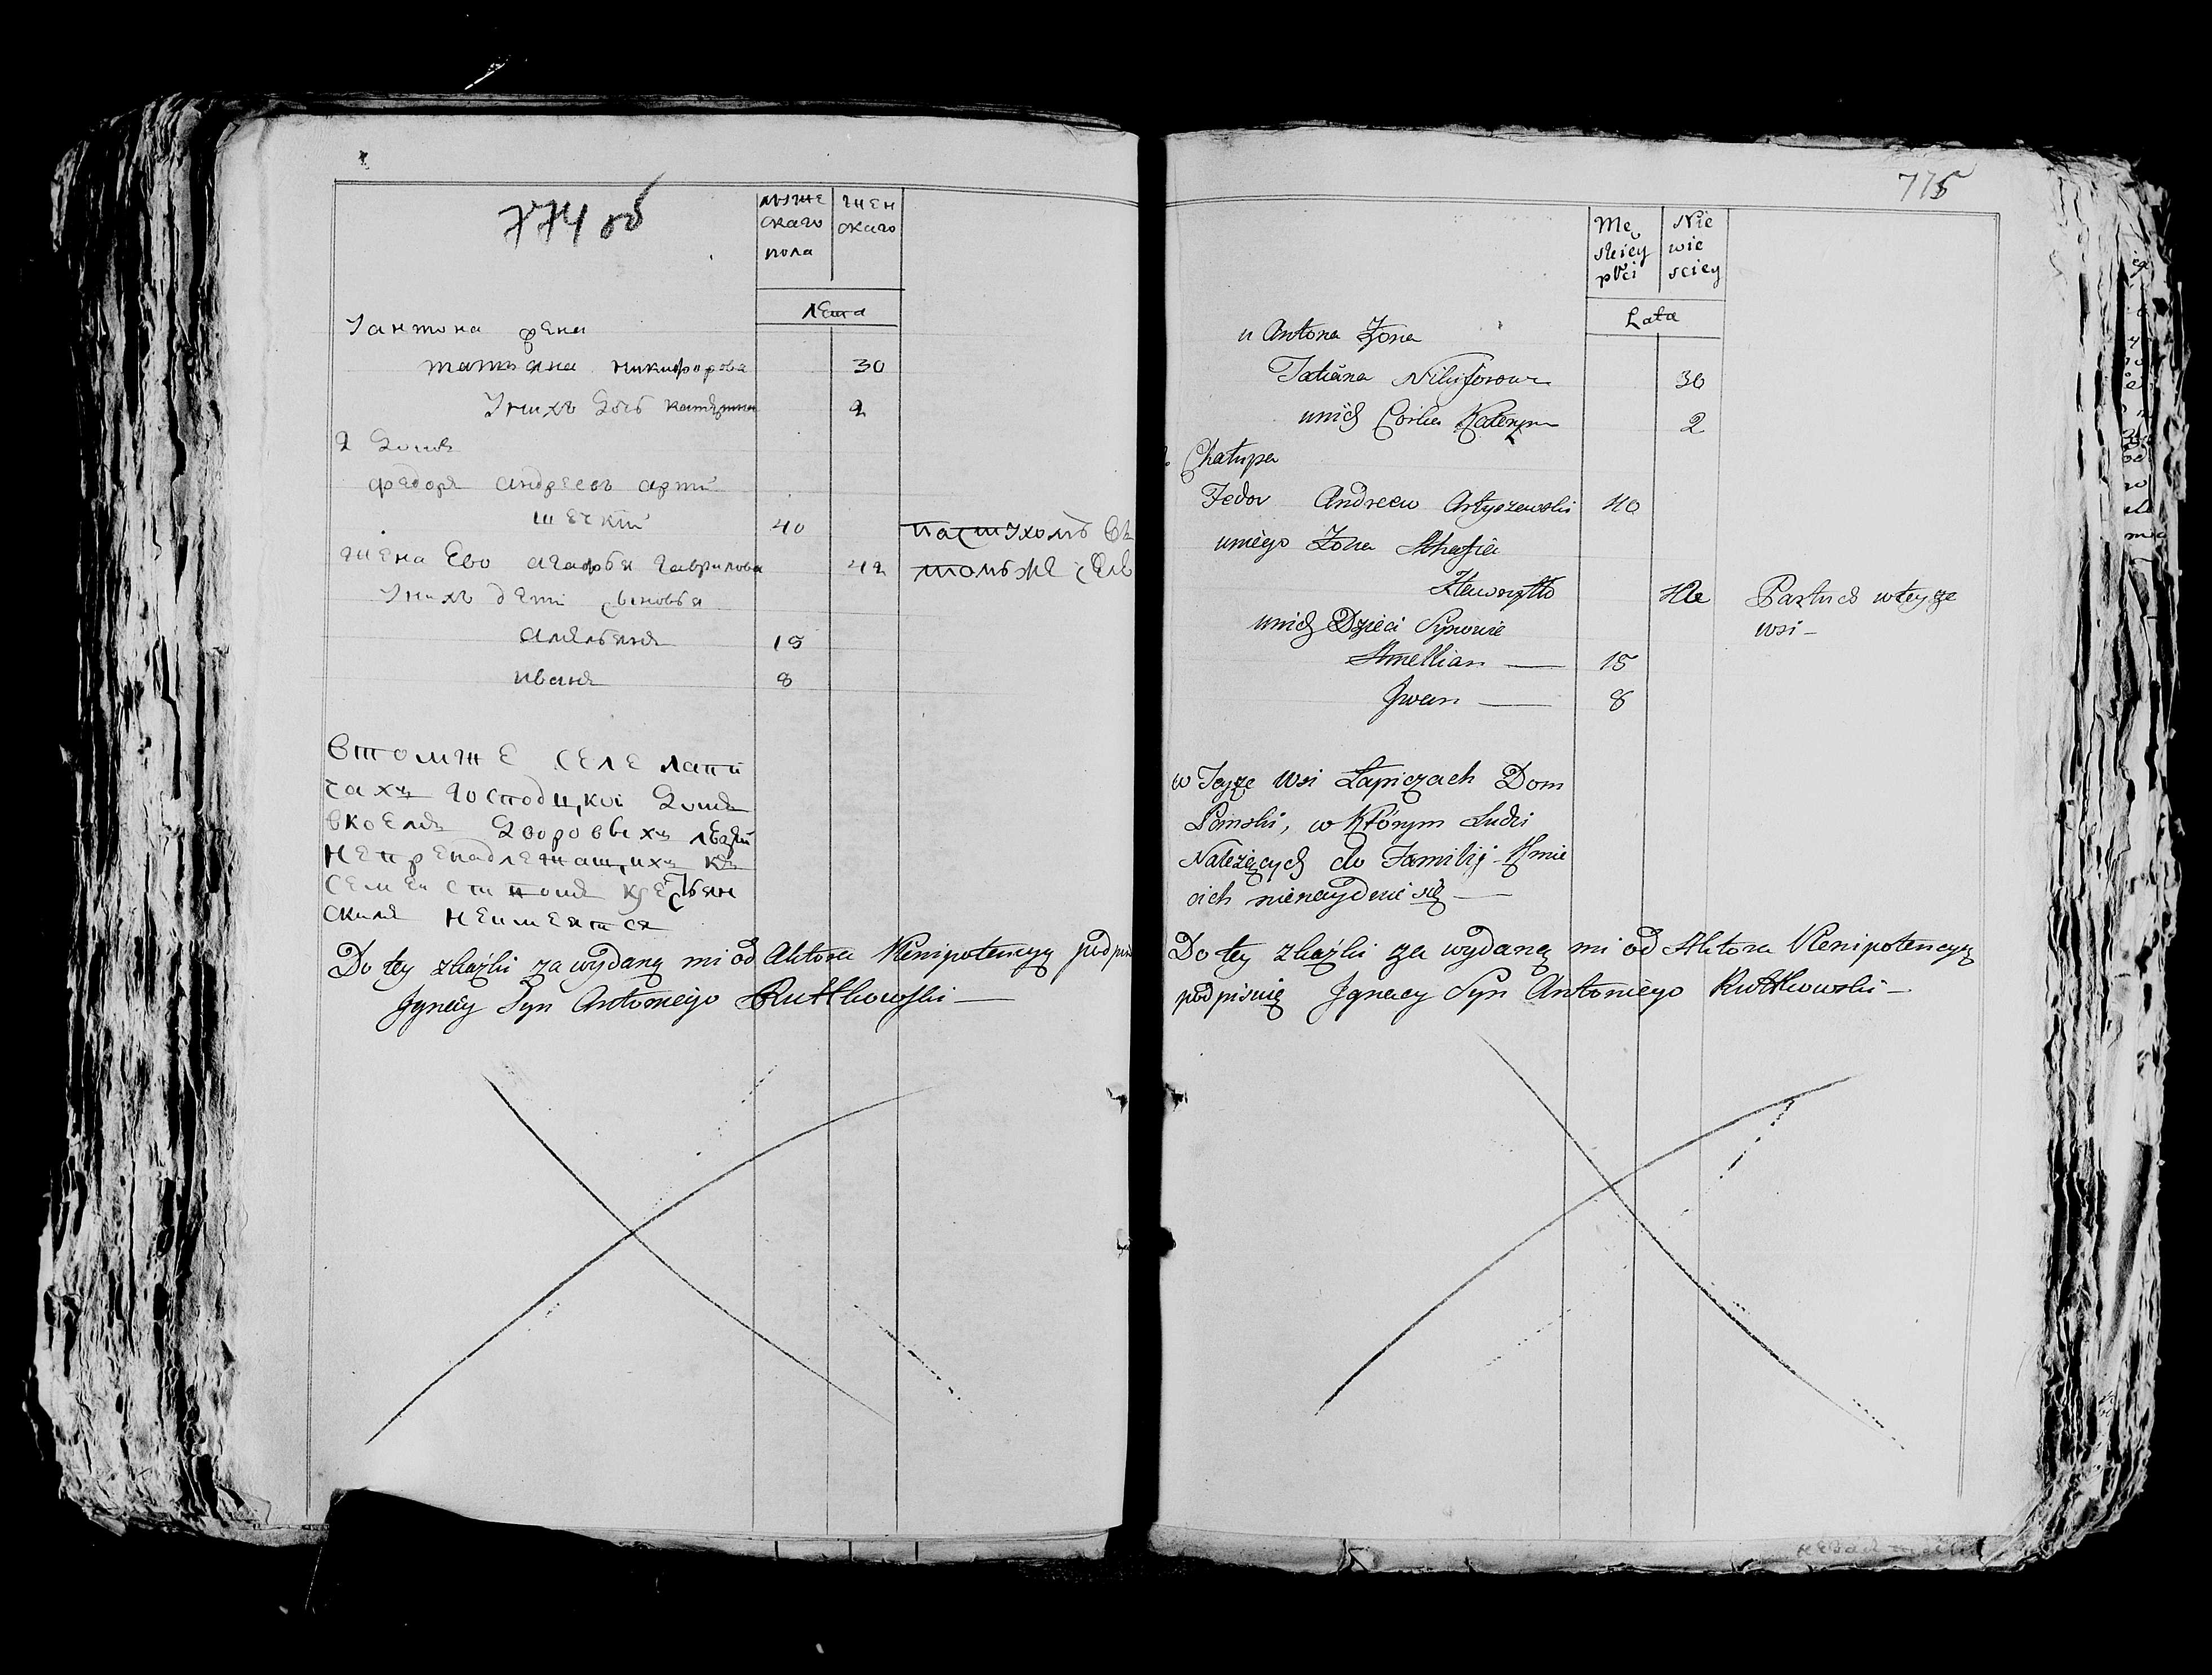 774 об
мужескаго пола
женскаго
лета
У антона жена
татьяна никифорова 30
У нихъ дочь катерина 2
2 домъ
федоръ андреевъ арти
шевскій 40 пастухомъ въ
жена Ево агафья гаврилова 42 томъже селе
У нихъ дети сыновья
амельянъ 15
иванъ 8
Втомже селе лапи
чахъ господскої домъ
вкоемъ дворовыхъ людей
непренадлежащихъ къ
семействомъ крестьян
скимъ неимеется
Do tey skazki za wydaną mi od Aktora Plenipotencyą podpis
Jgnacy Syn Antoniego Rutkowski —
775
Męskiey płci
Niewiesciey
Lata
u Antona Żona
Tatiana Nikiforowa 30
unich Corka Kateryna 2
Chałupa
Fedor Andreew Artyszewski 40
uniego Żona Ahafia
Hawryłło 42 Pastuch wteyże
wsi —
unich Dzieci Synowie
Amellian — 15
Jwan — 8
w Teyże Wsi Łapiczach Dom
Panski, w Którym Ludzi
Należących do Familij Kmie
cich nienaydzie się —
Do tey skazki za wydaną mi od Aktora Plenipotencyą
podpisuię Jgnacy Syn Antoniego Rutkowski —